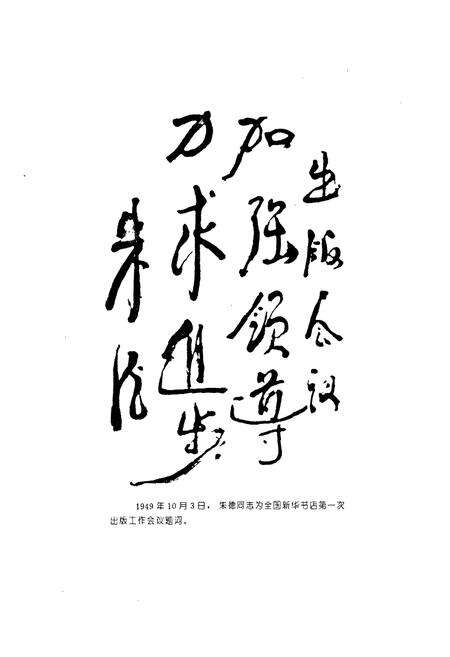 出版会议
加强领导
力求进步
朱德
1949年10月3日，朱德同志为全国新华书店第一次
出版工作会议题词。